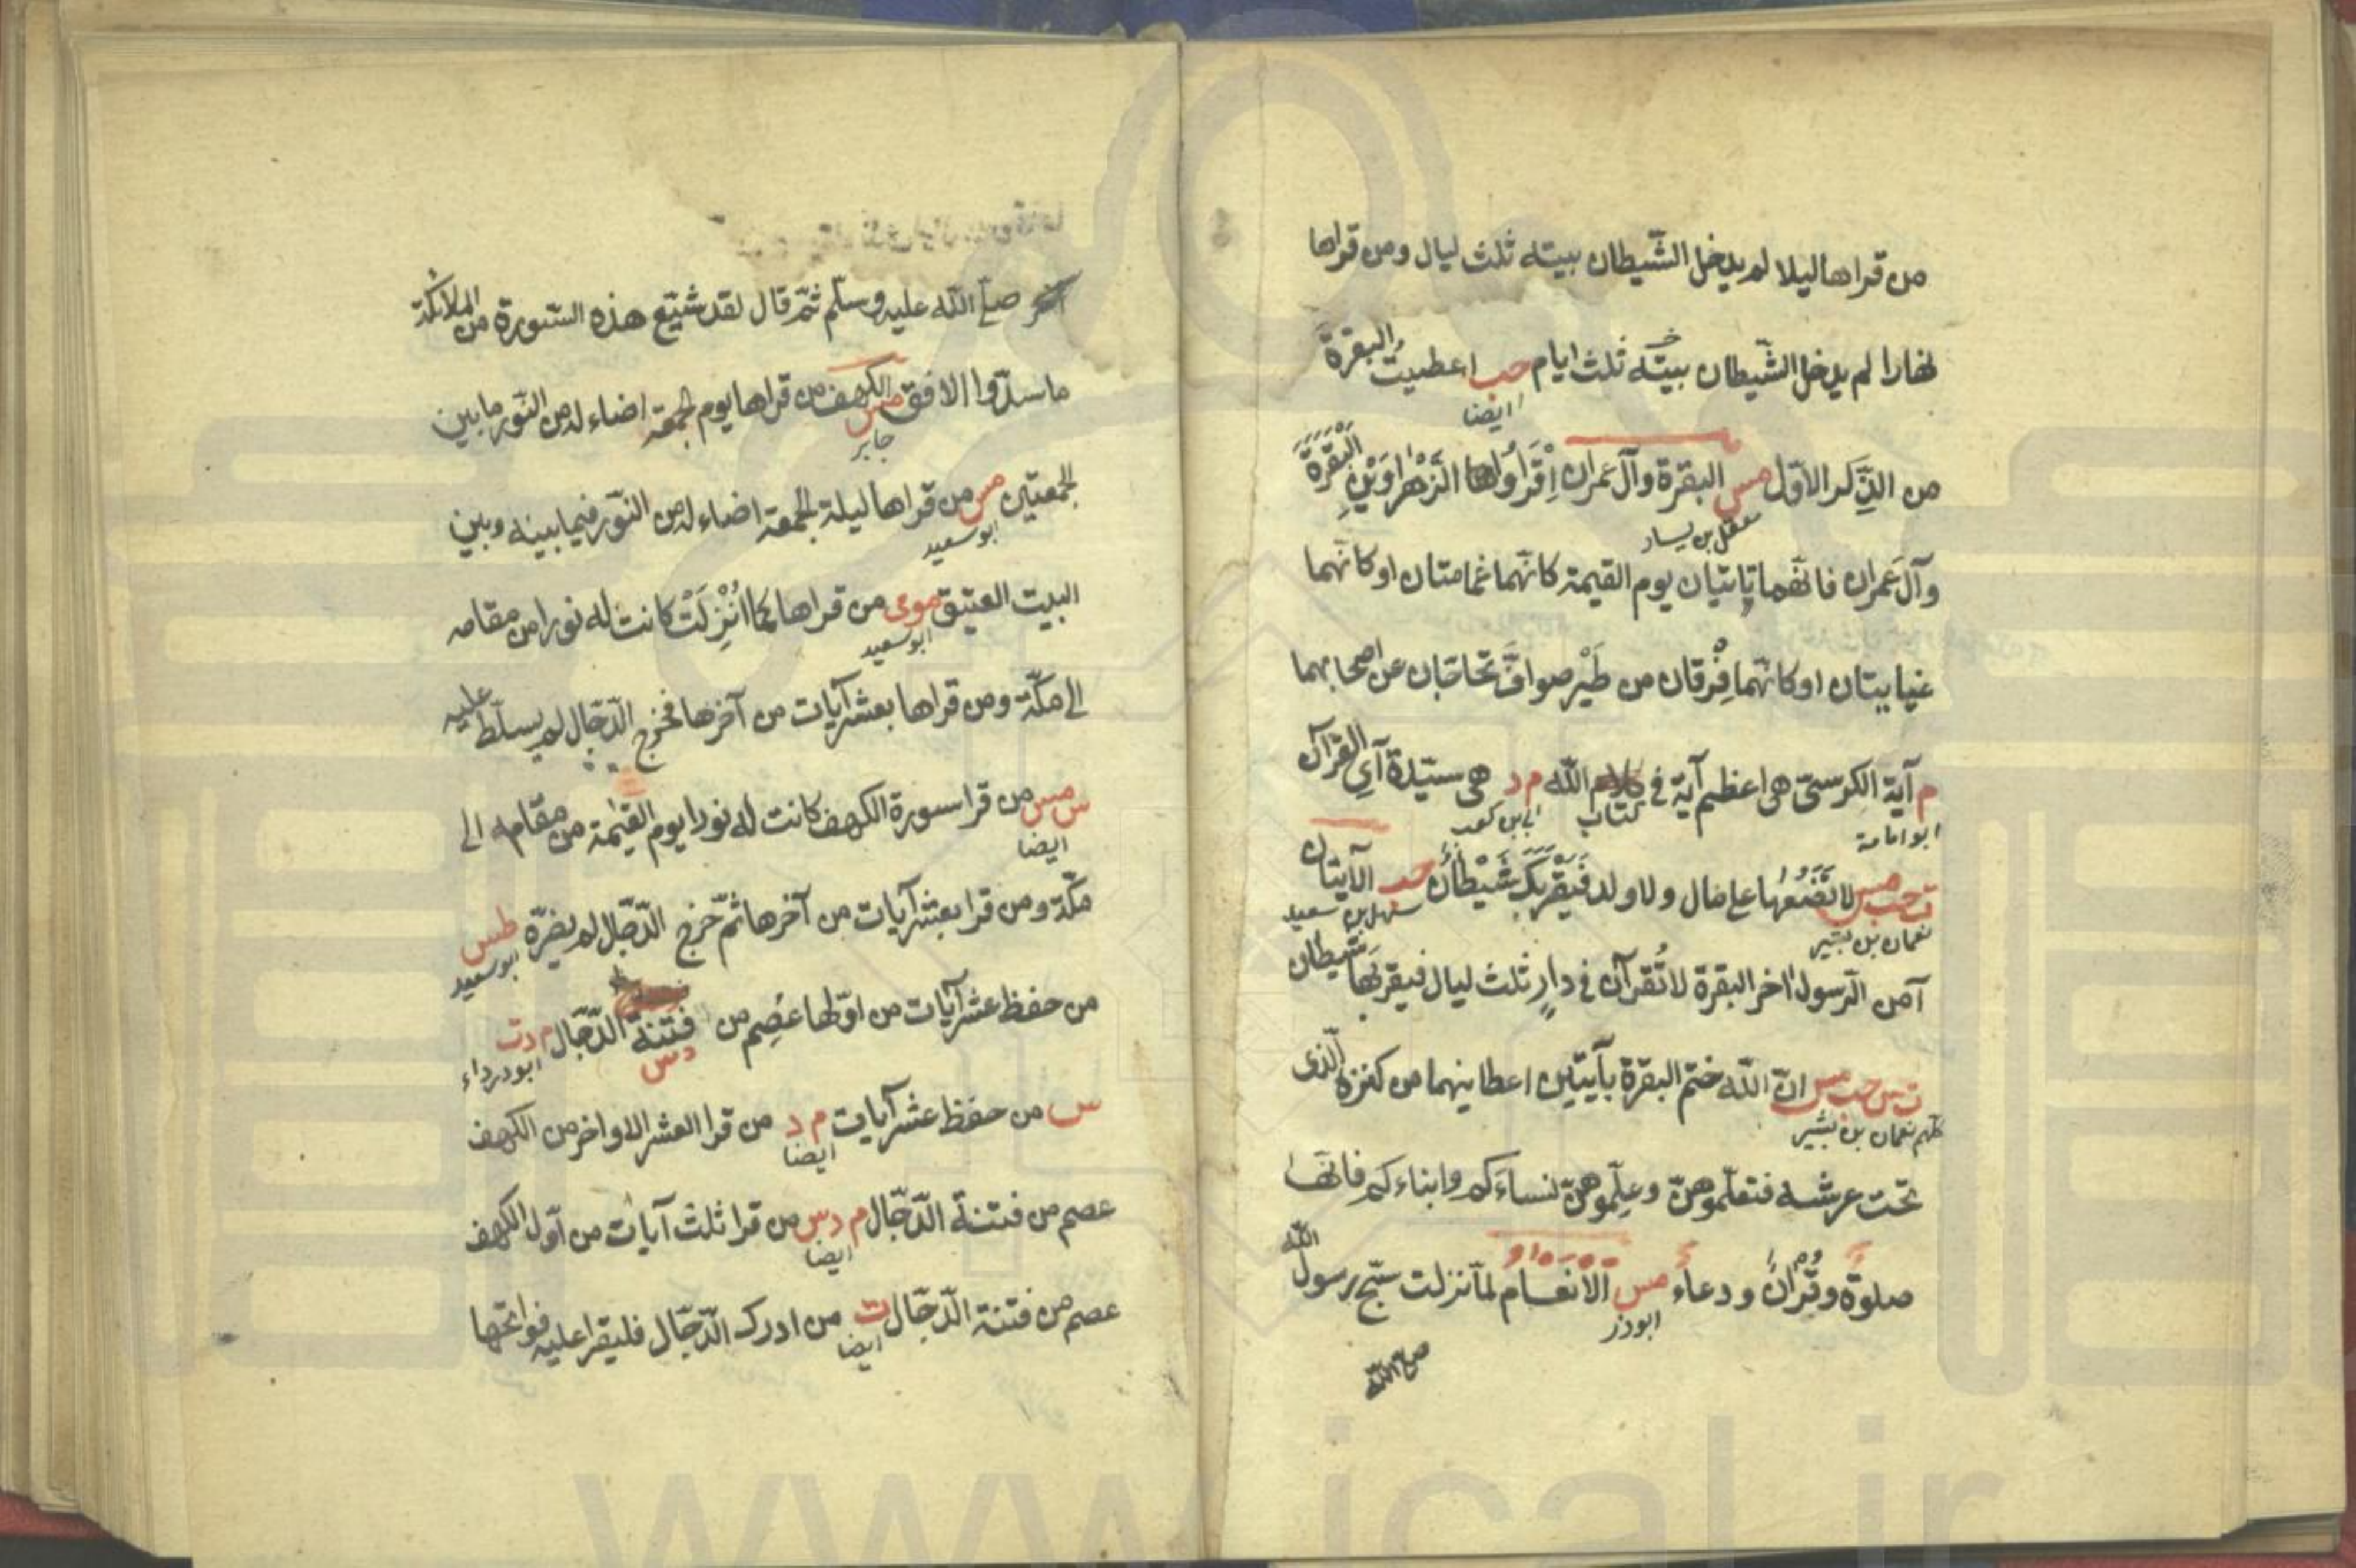 من قراها ليلا لم يدخل الشّيطان بيته ثلث ليال ومن قراها
نهارا لم يدخل الشّيطان بيته ثلث ايام حب اعطيت البقرة
ايضا
من الذّكر الاوّل مس البقرة وآل عمران اِقْرَاُوا الزَّهْرَاوَيْنِ البَقَرَةَ
معقل بن يسار
وآل عمران فانّهما تاتيان يوم القيمة كانّهما غمامتان او كانّهما
غيايتان او كانّهما فِرْقان من طَيْر صوافّ تحاجّان عن اصحابهما
م آية الكرسىّ هى اعظم آية فى كتاب اللّه م د هى سيّدة آي القرآن
ابو امامة ابى بن كعب
ت حب مس لا تَضَعُها على مال ولا ولد فَيَقْرَبَكَ شَيْطَانٌ حب الآيتان
نعمان بن بشير سهل بن سعيد
آمن الرّسول اخر البقرة لا تُقرآن فى دارٍ ثلث ليال فيقربَها شيطان
ت س حب مس انّ اللّه ختم البقرة بآيتين اعطانيهما من كنزه الّذى
كلهم نعمان بن بشير
تحت عرشه فتعلّموهنّ وعلّموهنّ نساءَكم وابناءكم فانّها
صلوة وقُرْانٌ ودعاء مس الانعام لمّا نزلت سبّح رسول اللّه
ابوذر
صلى اللّه
صلى اللّه عليه وسلّم ثمّ قال لقد شيّع هذه السّورة من الملائكة
ما سدّوا الافق مس الكهف من قراها يوم الجمعة اضاء له من النّور ما بين
جابر
الجمعتين مس من قراها ليلة الجمعة اضاء له من النّور فيما بينه وبين
ابو سعيد
البيت العتيق موى من قراها كما اُنْزِلَتْ كانت له نورا من مقامه
ابو سعيد
الى مكّة ومن قراها بعشر آيات من آخرها فخرج الدّجّال لم يسلّط عليه
س مس من قرا سورة الكهف كانت له نورا يوم القيٰمة من مقامه الى
ايضا
مكّة ومن قرا بعشر آيات من آخرها ثمّ خرج الدّجّال لم يضرّه طس
ابو سعيد
من حفظ عشر آيات من اوّلها عُصِم من فتنة الدّجّال م د ت
د س ابو درداء
س من حفظ عشر آيات م د من قرا العشر الاواخر من الكهف
ايضا
عصم من فتنة الدّجّال م د س من قرا ثلث آيات من اوّل الكهف
ايضا
عصم من فتنة الدّجّال ت من ادرك الدّجّال فليقرا عليه فواتحها
ايضا
www.ical.ir